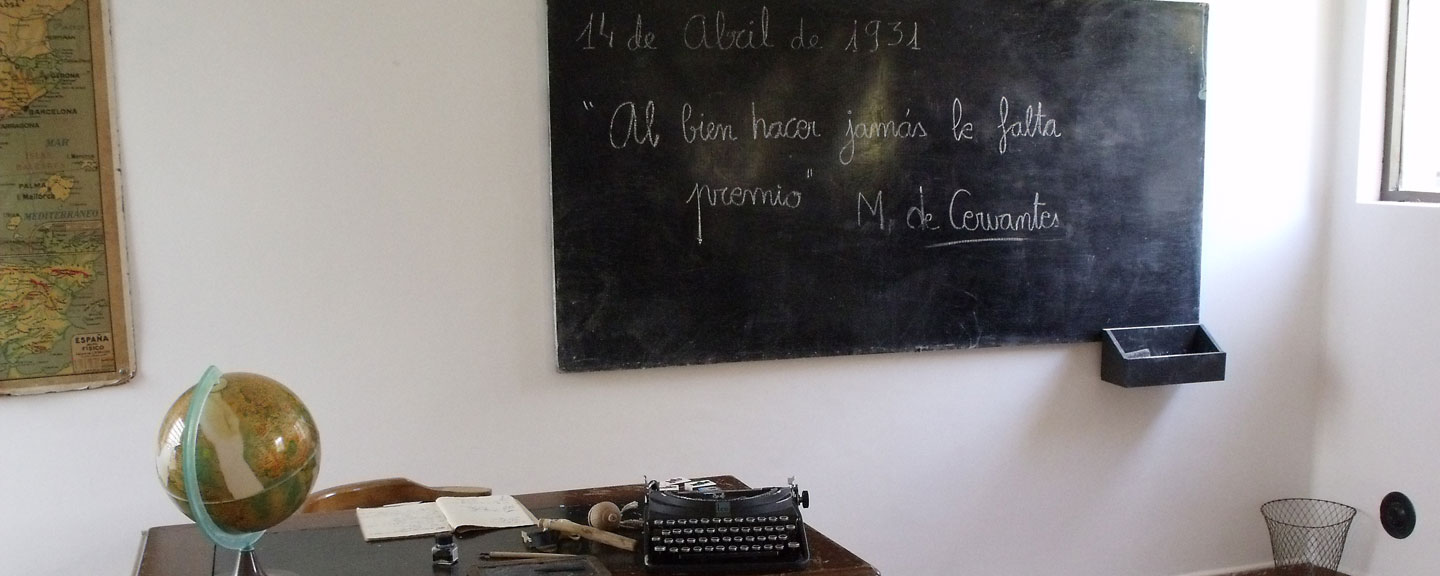 14 de Abril de 1931
"Al bien hacer jamás le falta
premio" M. de Cervantes
GERONA
BARCELONA
TARRAGONA
MAR
PALMA
Mallorca
MEDITERRÁNEO
ESPAÑA
FÍSICO